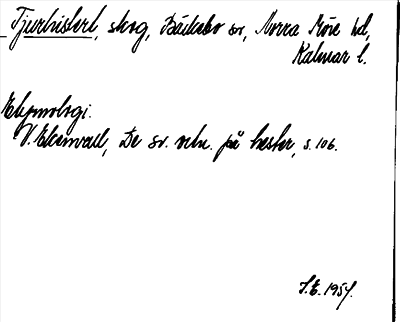 Tjurhisterl, skog, Bäckebo sn, Norra Möre hd,
Kalmar l.
Etymologi.
V. Ekenvall, De sv. ortn. på hester, s. 106.
S.E. 1957.